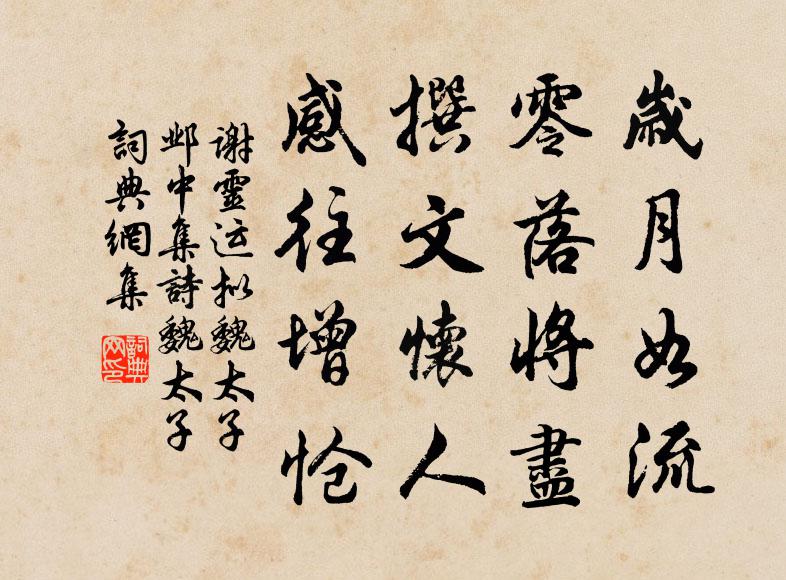 歲月如流
零落將盡
撰文懷人
感往增愴
謝靈運拟魏太子
邺中集詩魏太子
詞典網集
詞典网印